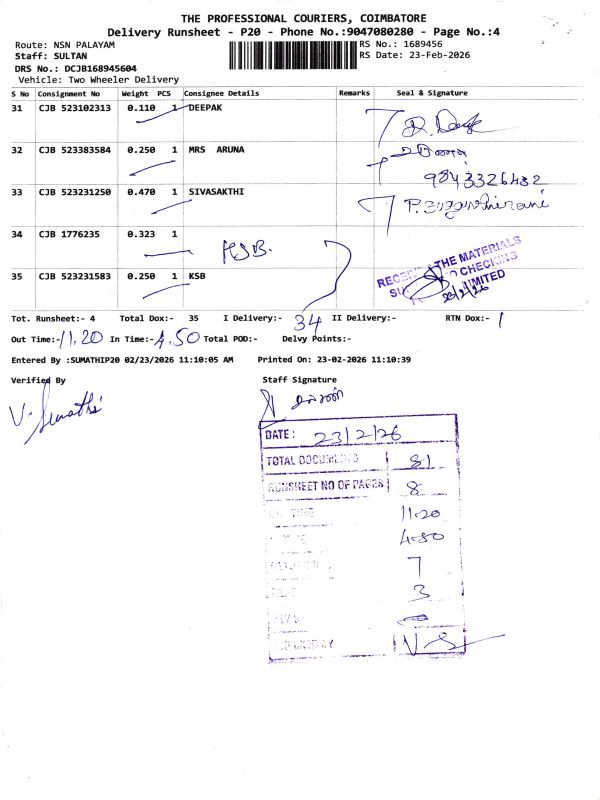 THE PROFESSIONAL COURIERS, COIMBATORE
Delivery Runsheet - P20 - Phone No.:9047080280 - Page No.:4
Route: NSN PALAYAM RS No.: 1689456
Staff: SULTAN RS Date: 23-Feb-2026
DRS No.: DCJB168945604
Vehicle: Two Wheeler Delivery
S No Consignment No Weight PCS Consignee Details Remarks Seal & Signature
31 CJB 523102313 0.110 1 DEEPAK
32 CJB 523383584 0.250 1 MRS ARUNA
9843326432
33 CJB 523231250 0.470 1 SIVASAKTHI
34 CJB 1776235 0.323 1
KSB.
35 CJB 523231583 0.250 1 KSB
THE MATERIALS
CHECKING
LIMITED
23/2/26
Tot. Runsheet:- 4 Total Dox:- 35 I Delivery:- 34 II Delivery:- RTN Dox:- 1
Out Time:- 11.20 In Time:- 4.50 Total POD:- Delvy Points:-
Entered By :SUMATHIP20 02/23/2026 11:10:05 AM Printed On: 23-02-2026 11:10:39
Verified By Staff Signature
V. Sumathi
DATE: 23/2/26
TOTAL DOCUMENTS 81
RUNSHEET NO OF PAGES 8
11.20
4.50
7
3